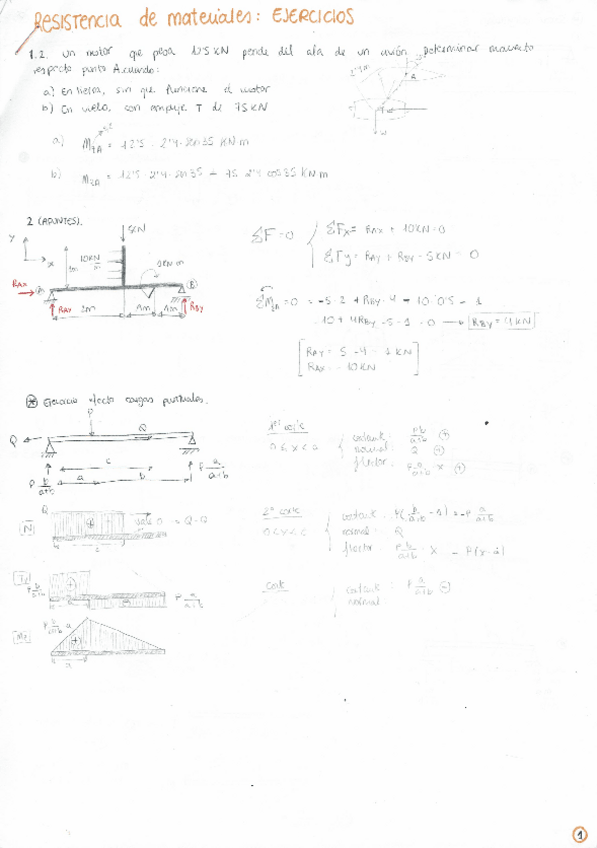 RESISTENCIA de materiales: EJERCICIOS
1.2. Un motor que pesa 12'5 KN pende del ala de un avión. Determinar momento
respecto punto A cuando:
a) En tierra, sin que funcione el motor
b) En vuelo, con empuje T de 75 KN
a) = 12'5 · 2'4 · sen 35 KN m
b) = 12'5 · 2'4 · sen 35 + 75 · 2'4 cos 35 KN m
2 (APUNTES).
5KN
Y
X
10KN
m
1m
RAX
A
B
RAY
2m
1m
1m
RBY
ΣF = 0
ΣFx = RAX + 10KN = 0
ΣFy = RAY + RBY - 5KN = 0
= 0 = -5·2 + RBY·4 - 10·0'5 - 1
RBY = 4KN
RAY = 5 - 4 = 1 KN
RAX = -10KN
Ejercicio efecto cargas puntuales.
P
Q
Q
c
a
b
P b/a+b
P a/a+b
1er corte
cortante: P b/a+b +
normal: Q +
flector: P b/a+b x +
N
Q
c
2º corte
cortante: P(b/a+b - 1) = -P a/a+b
normal: Q
flector: P b/a+b x - P(x-a)
P b/a+b
P a/a+b
cortante: P a/a+b -
normal
a
1